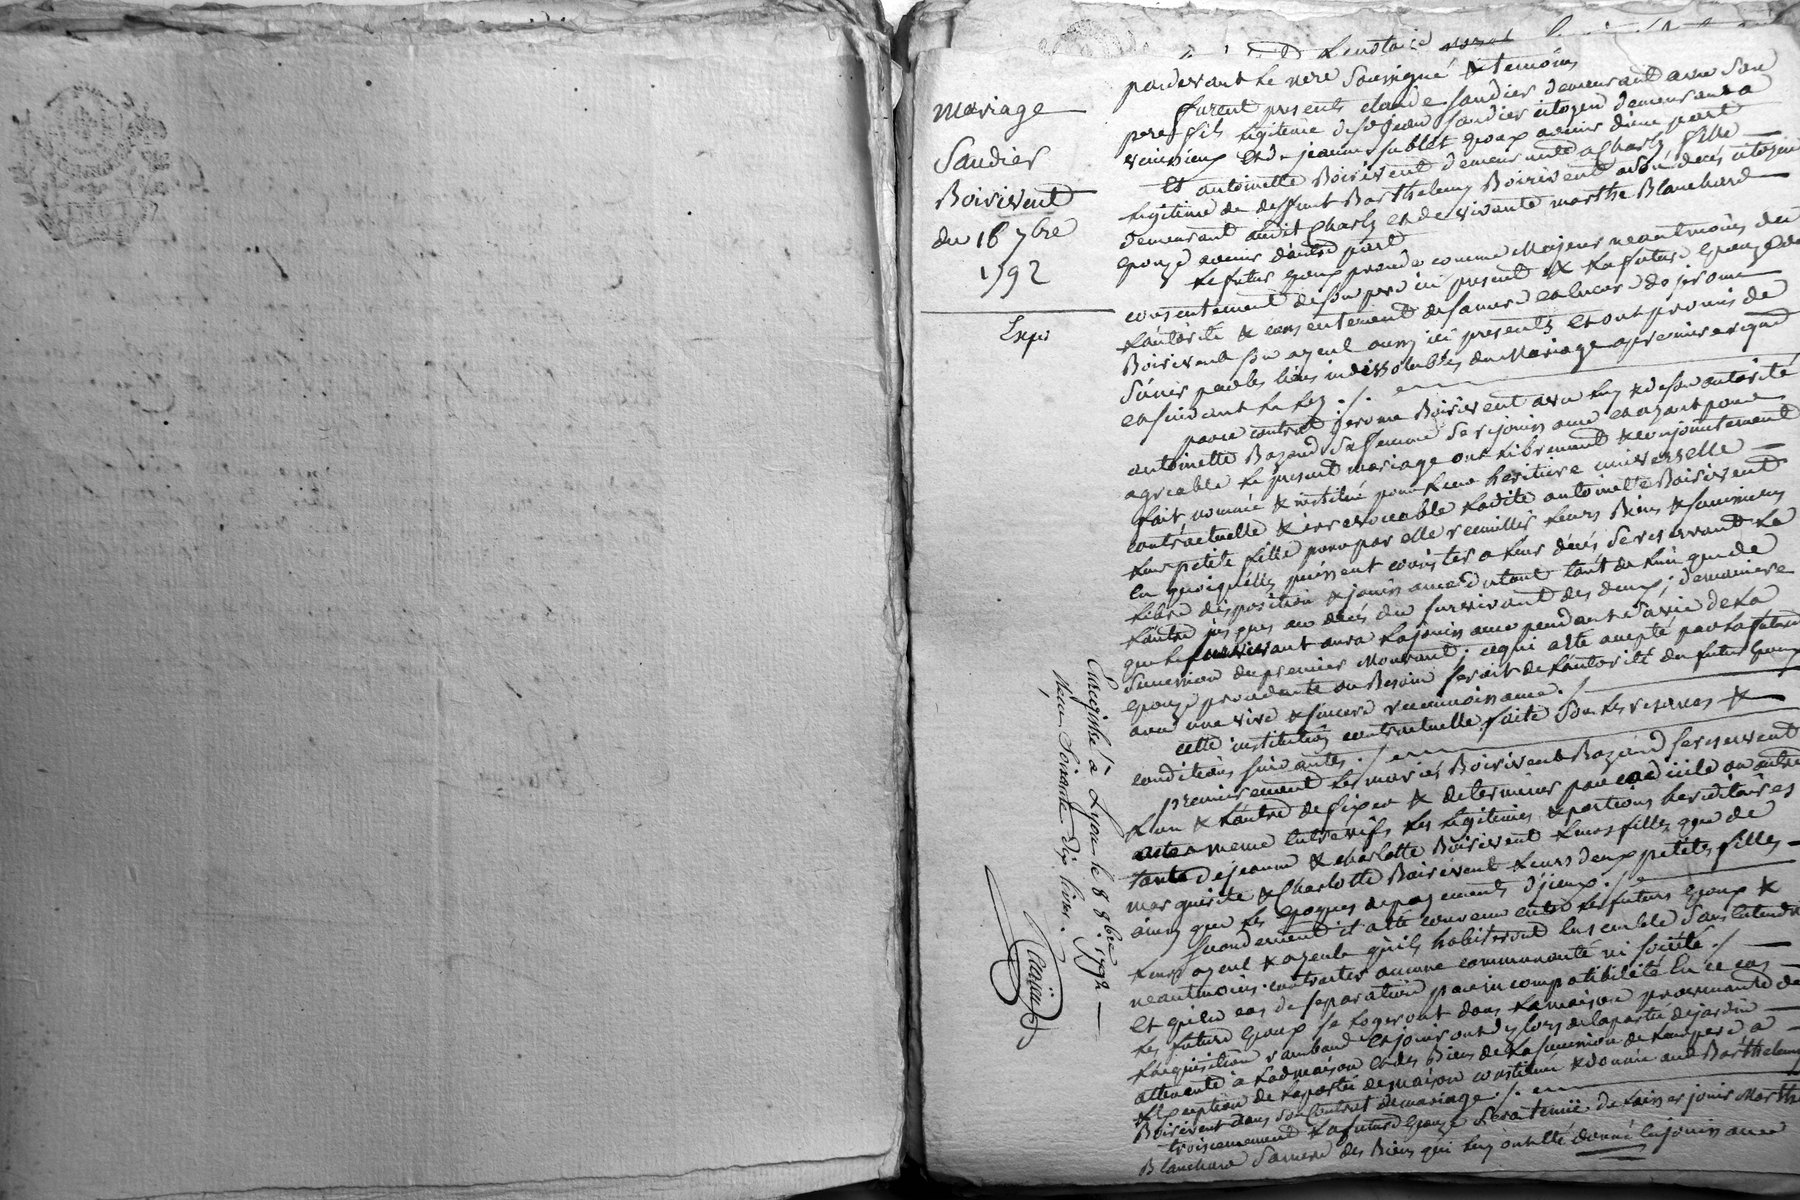 mariage
Saudier
Boirivent
du 16 7bre
1792
Expé
Enregistré à Lyon le 8 8bre 1792
Reçu Soixante dix livres.
pardevant le nore Soussigné & temoins
furent presents claude Saudier demeurant avec Son
pere fils legitime de Sr jean Saudier citoyen demeurant a
venissieux et de jeanne Sublet epoux avenir d'une part
Et antoinette Boirivent demeurante a Charly fille
legitime de deffunt Barthelemy Boirivent a Son deces citoyen
demeurant audit Charly et de vivante marthe Blanchard
epouse avenir d'autre part
Le futur epoux procede comme Majeur neantmoins du
consentement de Son pere ici present & La future epouse de
L'autorité & consentement de Sa mere et encore de jerome
Boirivent Son ayeul aussi ici presents et ont promis de
S'unir par les liens indissolubles du Mariage a premier requis
en Suivant la Loy ./.
par ce contrat jerome Boirivent avec Luy & de Son autorité
antoinette Bazand Sa femme Se rejouissance et ayant pour
agreable Le present mariage ont librement & conjointement
fait nommé & institué pour Leur heritiere universelle
contractuelle & irrevocable Ladite antoinette Boirivent
Leur petite fille pour par elle recueillir Leurs Biens & Successions
En quoi qu'elles puissent consister a Leur décés Se reservant La
Libre disposition & jouissance durant tant de L'un que de
L'autre jusques au décés du Survivant des deux; de maniere
que Le Survivant aura La jouissance pendant Sa vie de La
Succession du premier Mourant; ce qui a été accepté par La future
epouse procedante au Besoin Seroit de L'autorité du futur epoux
avec une vive & Sincere reconnoissance ./.
cette institution contractuelle faite Sous Les reserves &
conditions Suivantes ./.
premierement Les mariés Boirivent Bazand Se reservent
L'un & L'autre de fixer & determiner par codicile ou autre
acte meme Entrevifs Les legitimes & portions hereditaires
tant de jeanne & charlotte Boirivent Leurs filles que de
marguerite & Charlotte Boirivent Leurs deux petites filles
ainsi que Les epoques de payements d'jceux ./.
Secondement il a été convenu entre Les futurs epoux &
Leurs ayeul & ayeule qu'ils habiteront Ensemble Sans Entendre
neantmoins contracter aucune communauté ni Société ./.
Et qu'en cas de Separation par incompatibilité En ce cas
Les futurs epoux Se Logeront dans La maison provenante de
L'acquisition rambaud Et jouiront des Lors de la partie de jardin
attenante à Lad. maison Et des Biens de La Succession de Leur pere a
L'Exception de La partie de maison constituée & donnée aud. Barthelemy
Boirivent dans Son Contrat de mariage ./.
troisiemement La future epouse Sera tenue de Laisser jouir Marthe
Blanchard Sa mere des Biens qui luy ont été donné En jouissance